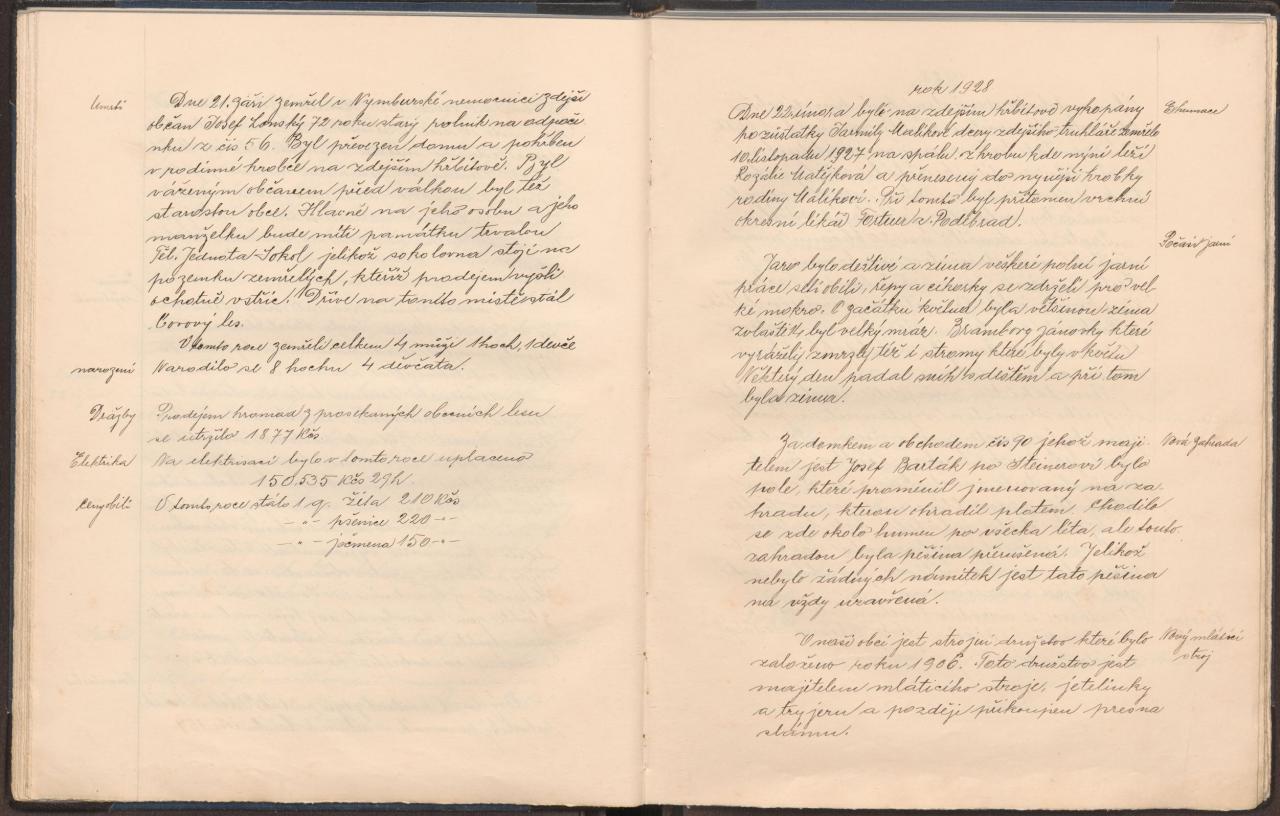 Úmrtí
Dne 21. září zemřel v Nymburské nemocnici zdejší
občan Josef Lonský 72 roku starý rolník na odpoči
nku z čís 56. Byl převezen domu a pohřben
v rodinné hrobce na zdejším hřbitově. Byl
váženým občanem před válkou byl též
starostou obce. Hlavně na jeho osobu a jeho
manželku bude míti památku tevalou
Těl. Jednota Sokol jelikož sokolovna stojí na
pozemku zemřelých, kteříž prodejem vyšli
ochotně vstříc. Dříve na tomto místě stál
borový les.
V tomto roce zemřeli celkem 4 muži 1 hoch, 1 děvče
narození Narodilo se 8 hochu 4 děvčata.
Dražby Prodejem hromad z prosekaných obecních lesu
se utržilo 1877 Kčs
Elektrika Na elektrisaci bylo v tomto roce uplaceno
150.535 Kčs 29 h.
Ceny obilí V tomto roce stálo 1 q. žita 210 Kčs
-"- pšenice 220 -"-
-"- ječmena 150 -"-
rok 1928
Dne 22 února bylo na zdejším hřbitově vykopány Exhumace
pozustatky Jarmily Malíkové dcery zdejšího truhláře zemřelé
10. listopadu 1927 na spálu. z hrobu kde nyní leží
Rozálie Matějková a přineseny do nynější hrobky
rodiny Malíkovi. Při tomto byl přítomen vrchní
okresní lékař z Poděbrad.
Počasí jarní
Jaro bylo deštivé a zima veškeré polní jarní
práce setí obilí, řepy a cikorky se zdrželi pro vel
ké mokro. O začátku května byla většinou zima
zvláště byl velký mráz. Brambory janovky které
vyrážely zmrzly též i stromy které byly v květu
Některý den padal sníh s deštěm a při tom
byla zima.
Za domkem a obchodem čís 90 jehož maji- Nová zahrada
telem jest Josef Barták po Steinerovi bylo
pole, které proměnil jmenovaný na za
hradu, kterou ohradil plotem. Chodilo
se zde okolo humen po všecka léta, ale touto
zahradou byla pěšina přerušená. Jelikož
nebylo žádných námitek jest tato pěšina
na vždy uzavřená.
V naší obci jest strojní družstvo které bylo Nový mlátící
založeno roku 1906. Toto družstvo jest stroj
majitelem mláticího stroje, jetelinky
a tryjeru a později přikoupen presna
slámu.